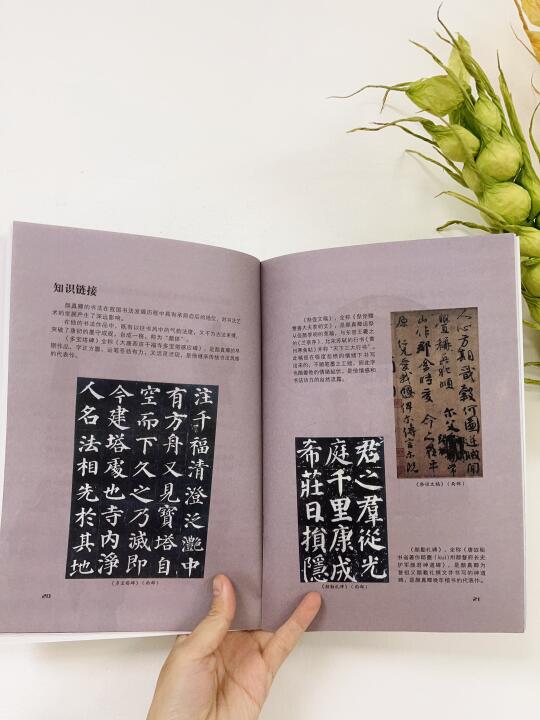 知识链接
颜真卿的书法在我国书法发展历程中具有承前启后的地位，对书法艺
术的发展产生了深远影响。
在他的书法作品中，既有以往书风中的气韵法度，又不为古法束缚，
突破了唐初的墨守成规，自成一格，称为“颜体”。
《多宝塔碑》，全称《大唐西京千福寺多宝塔感应碑》，是颜真卿的早
期作品，字正方墨，
的代表作。
注千福清澄泛灔中
有方舟又見寶塔自
空而下久之乃滅即
今建塔處也寺内淨
人名法相先於其地
《多宝塔碑》（局部）
20
《祭侄文稿》，全称《祭侄赠
赞善大夫季明文》，是颜真卿追祭
从侄颜季明的草稿，与东晋王羲之
《兰亭序》、北宋苏轼的行书《黄
州寒食帖》并称“天下三大行书”。
此稿是在极度悲愤的情绪下书写
出来的，不顾笔墨之工拙，因此字
书法功力的自然流露。
《祭侄文稿》（局部）
君之羣從光
庭千里康成
希莊日損隱
《颜勤礼碑》（局部）
《颜勤礼碑》，全称《唐故秘
书省著作郎夔（kuí）州都督府长史
护军颜君神道碑》，是颜真卿为
曾祖父颜勤礼撰文并书写的神道
碑，是颜真卿晚年楷书的代表作。
21